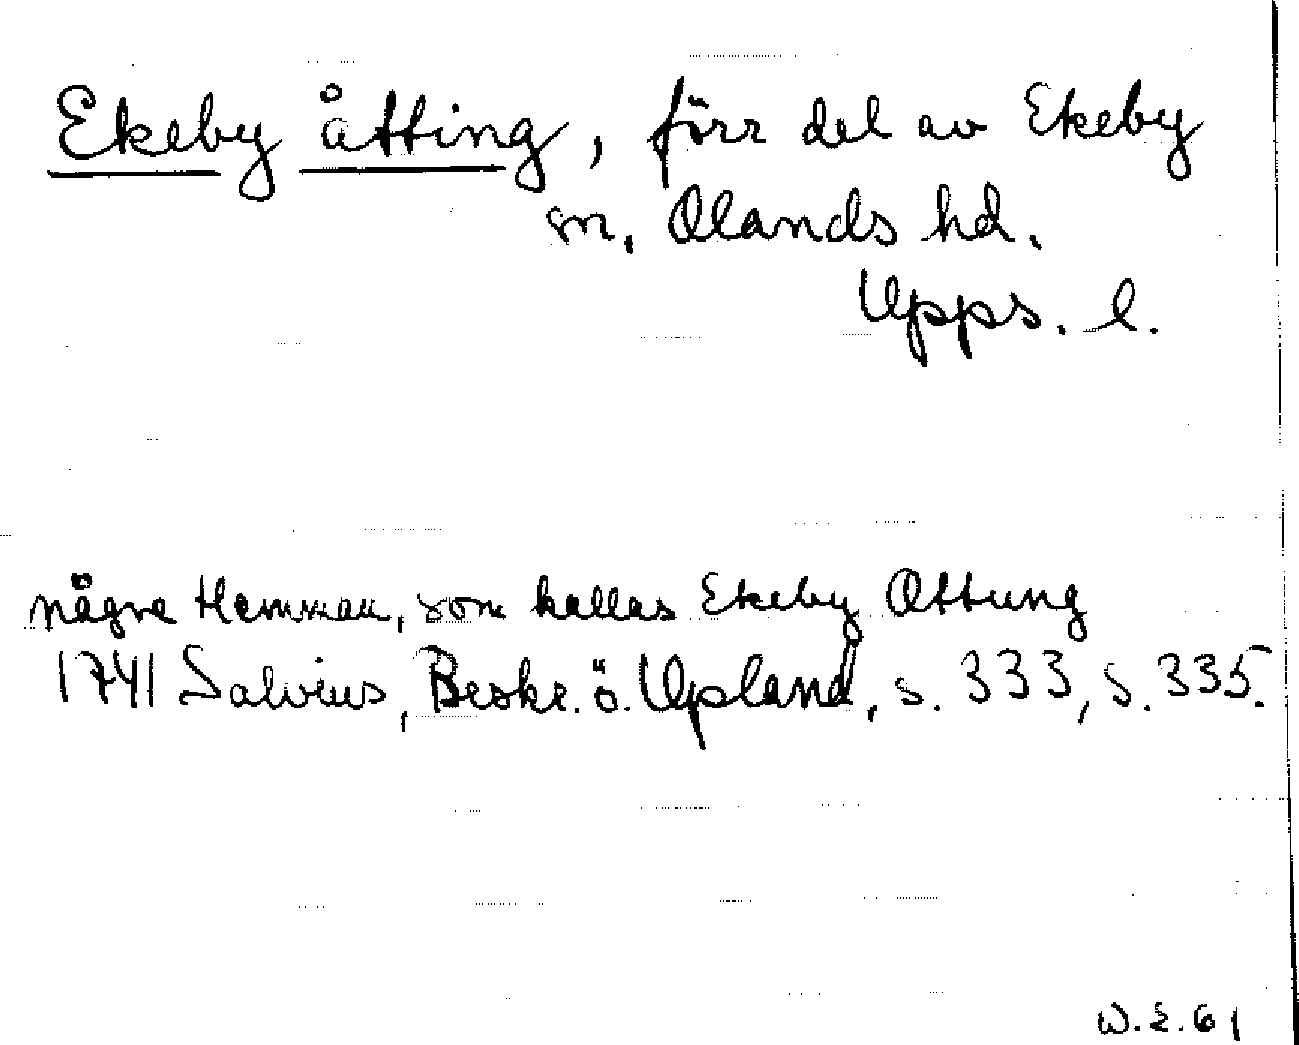 Ekeby åtting, förr del av Ekeby
sn, Olands hd.
Upps. l.
någre Hemman, som kallas Ekeby Ottung
1741 Salvius, Beskr. ö. Upland, s. 333, s. 335.
W.E. 61